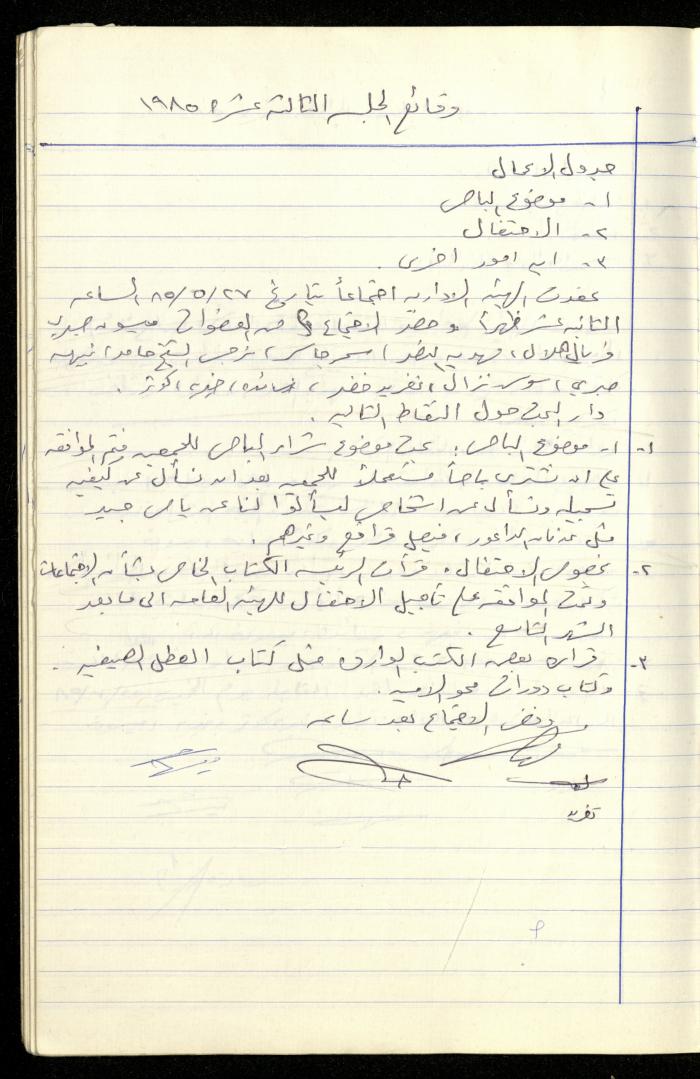 وقائع الجلسة الثالثة عشر ١٩٨٥
جدول الاعمال
١- موضوع الباص
٢- الاحتفال
٣- اية امور اخرى.
عقدت الهيئة الادارية اجتماعاً بتاريخ ٢٧/٥/٨٥ الساعة
الثانية عشر ظهراً وحضر الاجتماع من العضوات ميسون صبري
فريال هلال، مهدية ، سمر جاسر، نرجس الشيخ حامد، نبيهة
صبري، سوسن نزال، تغريد خضر، فائدة،
دار البحث حول النقاط التالية.
١- ١- موضوع الباص: بحث موضوع شراء الباص للجمعية فتم الموافقة
على ان نشتري باصاً مستعملاً للجمعية بعد ان نسأل عن كيفية
تسجيله ونسأل عن اشخاص ليسألوا لنا عن باص جيد
مثل عدنان الداعور، فيصل قراقع وغيرهم.
٢- بخصوص الاحتفال. قرأت الرئيسة الكتاب الخاص بشأن الاجتماعات
وتمت الموافقة على تأجيل الاحتفال للهيئة العامة الى ما بعد
الشهر التاسع.
٣- قراءة بعض الكتب الواردة مثل كتاب العطل الصيفية.
وكتاب دورات محو الامية.
وفض الاجتماع بعد ساعة
تغريد